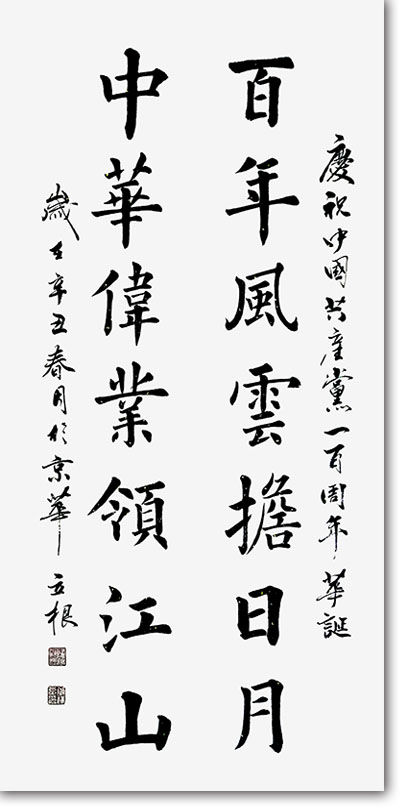 慶祝中國共產黨一百周年華誕
百年風雲擔日月
中華偉業領江山
歲在辛丑春月於京華
立根